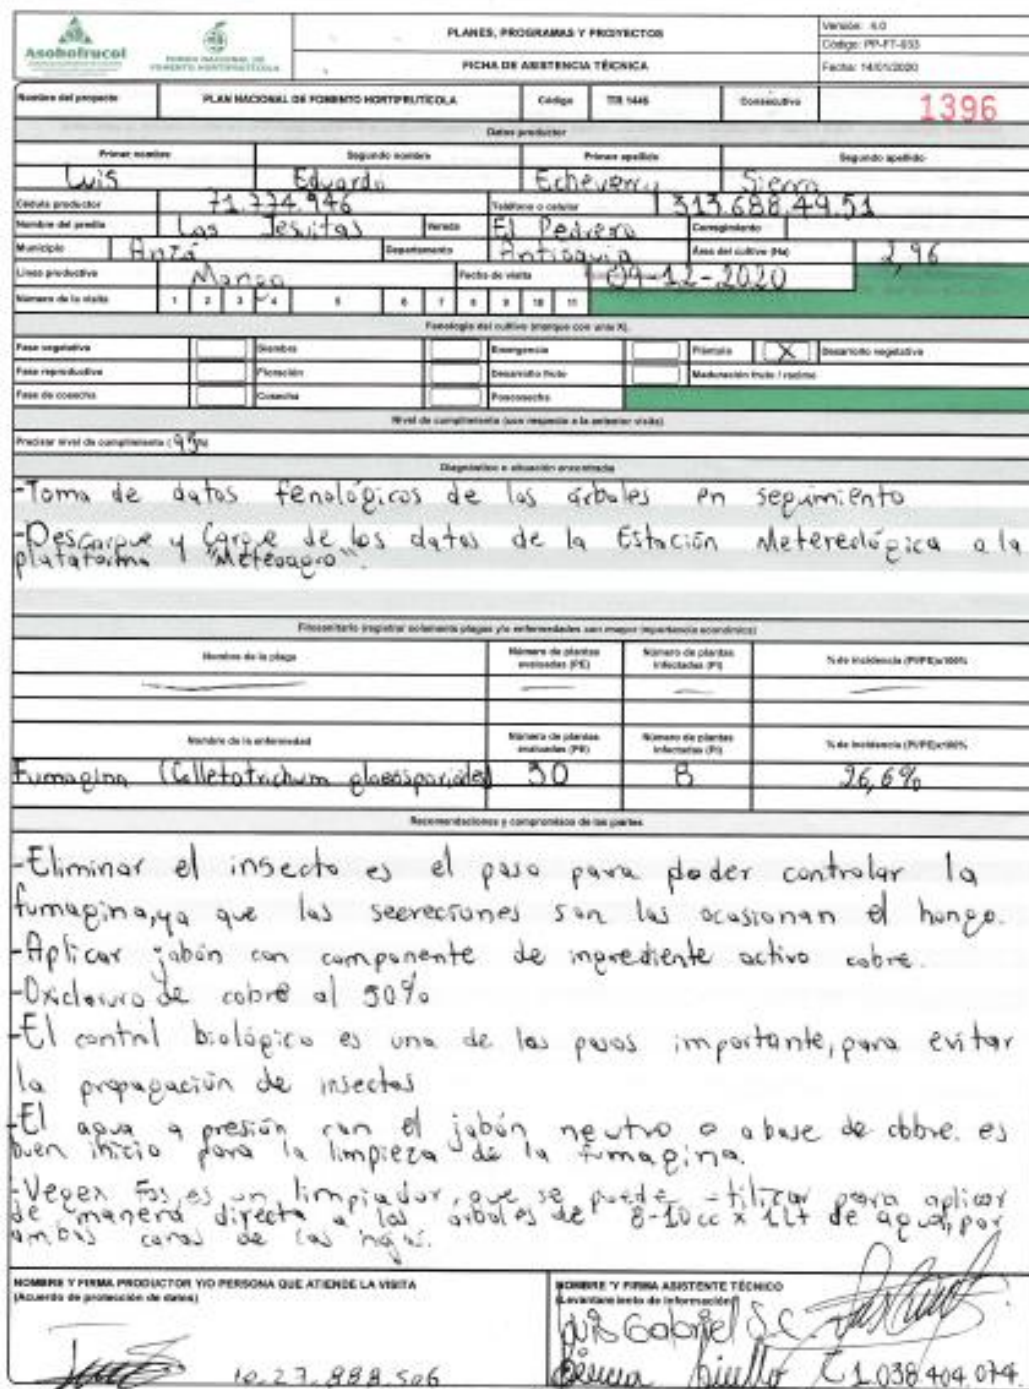 Asohofrucol
FONDO NACIONAL DE
FOMENTO HORTIFRUTÍCOLA
PLANES, PROGRAMAS Y PROYECTOS
FICHA DE ASISTENCIA TÉCNICA
Versión: 4.0
Código: PP-FT-033
Fecha: 14/01/2020
Nombre del proyecto PLAN NACIONAL DE FOMENTO HORTIFRUTÍCOLA Código TIR 1445 Consecutivo 1396
Datos productor
Primer nombre Segundo nombre Primer apellido Segundo apellido
Luis Eduardo Echeverry Sierra
Cédula productor 71.774.946 Teléfono o celular 313.688.49.51
Nombre del predio Las Jesuitas Vereda El Pedrero Corregimiento
Municipio Anzá Departamento Antioquia Área del cultivo (Ha) 2,96
Línea productiva Mango Fecha de visita 04-12-2020
Número de la visita 1 2 3 4 5 6 7 8 9 10 11
Fenología del cultivo (marque con una X).
Fase vegetativa Siembra Emergencia Plántula X Desarrollo vegetativo
Fase reproductiva Floración Desarrollo fruto Maduración fruto / racimo
Fase de cosecha Cosecha Poscosecha
Nivel de cumplimiento (con respecto a la anterior visita)
Precisar nivel de cumplimiento ( %)
Diagnóstico o situación encontrada
-Toma de datos fenológicos de los árboles en seguimiento
-Descargue y Cargue de los datos de la Estación Metereológica a la
plataforma "Meteoagro".
Fitosanitario (registrar solamente plagas y/o enfermedades con mayor importancia económica)
Nombre de la plaga Número de plantas evaluadas (PE) Número de plantas infectadas (PI) % de incidencia (PI/PE)x100%
Nombre de la enfermedad Número de plantas evaluadas (PE) Número de plantas infectadas (PI) % de incidencia (PI/PE)x100%
Fumagina (Colletotrichum gloeosporioides) 30 8 26,6%
Recomendaciones y compromisos de las partes
-Eliminar el insecto es el paso para poder controlar la
fumagina, ya que las secreciones son las ocasionan el hongo.
-Aplicar jabón con componente de ingrediente activo cobre.
-Oxicloruro de cobre al 50%
-El control biológico es una de los pasos importante, para evitar
la propagación de insectos
-El agua a presión con el jabón neutro o a base de cobre. es
buen inicio para la limpieza de la fumagina.
-Vegex Fos, es un limpiador, que se puede utilizar para aplicar
de manera directa a los árboles de 8-10cc x 1Lt de agua, por
ambas caras de las hojas.
NOMBRE Y FIRMA PRODUCTOR Y/O PERSONA QUE ATIENDE LA VISITA
(Acuerdo de protección de datos)
10.27.888.506
NOMBRE Y FIRMA ASISTENTE TÉCNICO
(Levantamiento de información)
Luis Gabriel S.C.
1.038.404.074.